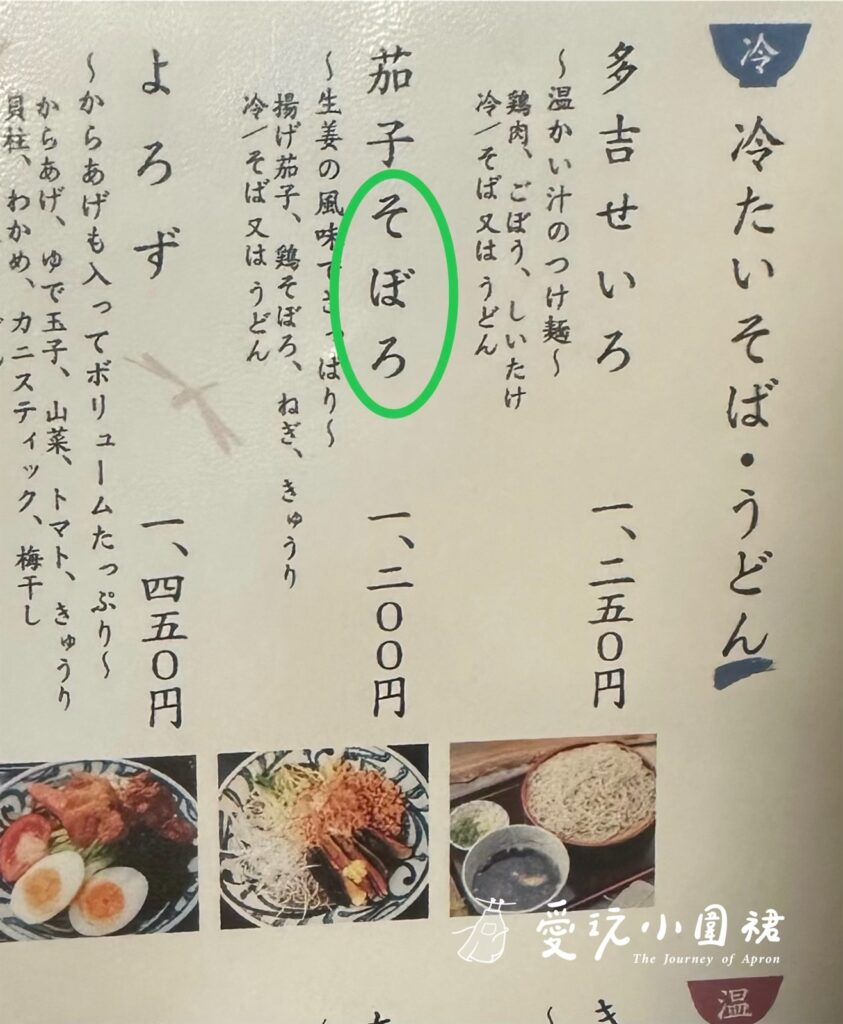 冷
冷たいそば・うどん
多吉せいろ
～温かい汁のつけ麺～
鶏肉、ごぼう、しいたけ
冷／そば又はうどん
一、二五〇円
茄子そぼろ
～生姜の風味でさっぱり～
揚げ茄子、鶏そぼろ、ねぎ、きゅうり
冷／そば又はうどん
一、二〇〇円
よろず
～からあげも入ってボリュームたっぷり～
からあげ、ゆで玉子、山菜、トマト、きゅうり
貝柱、わかめ、カニスティック、梅干し
一、四五〇円
愛玩小圍裙
The Journey of Apron
温